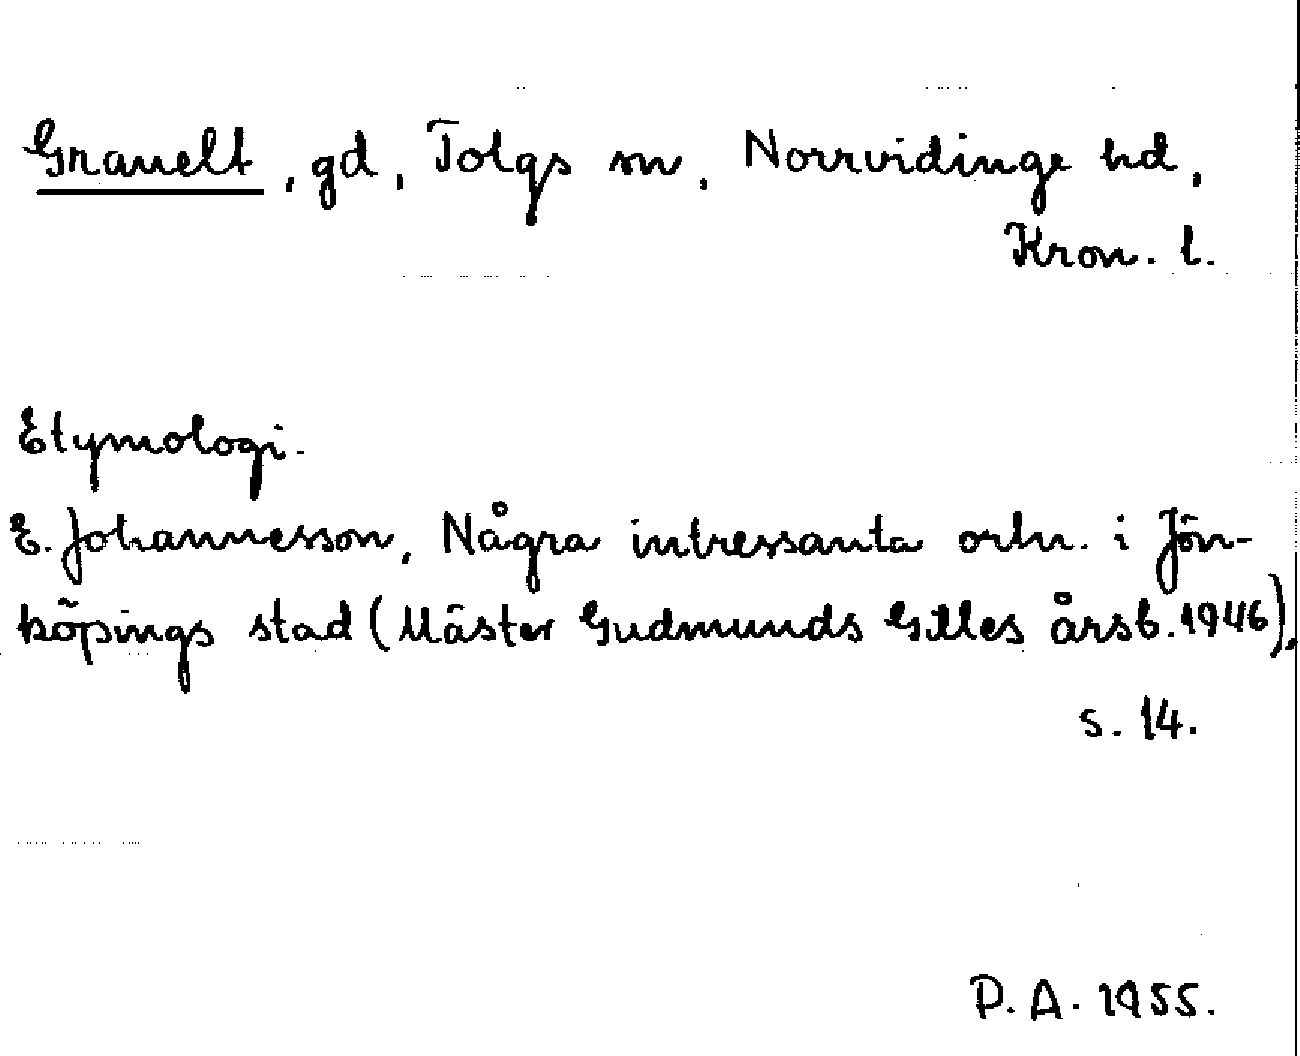 Granelt, gd, Tolgs sn, Norrvidinge hd,
Kron. l.
Etymologi.
E. Johannesson, Några intressanta ortn. i Jön-
köpings stad (Mäster Gudmunds Gilles årsb. 1946),
s. 14.
P. A. 1955.